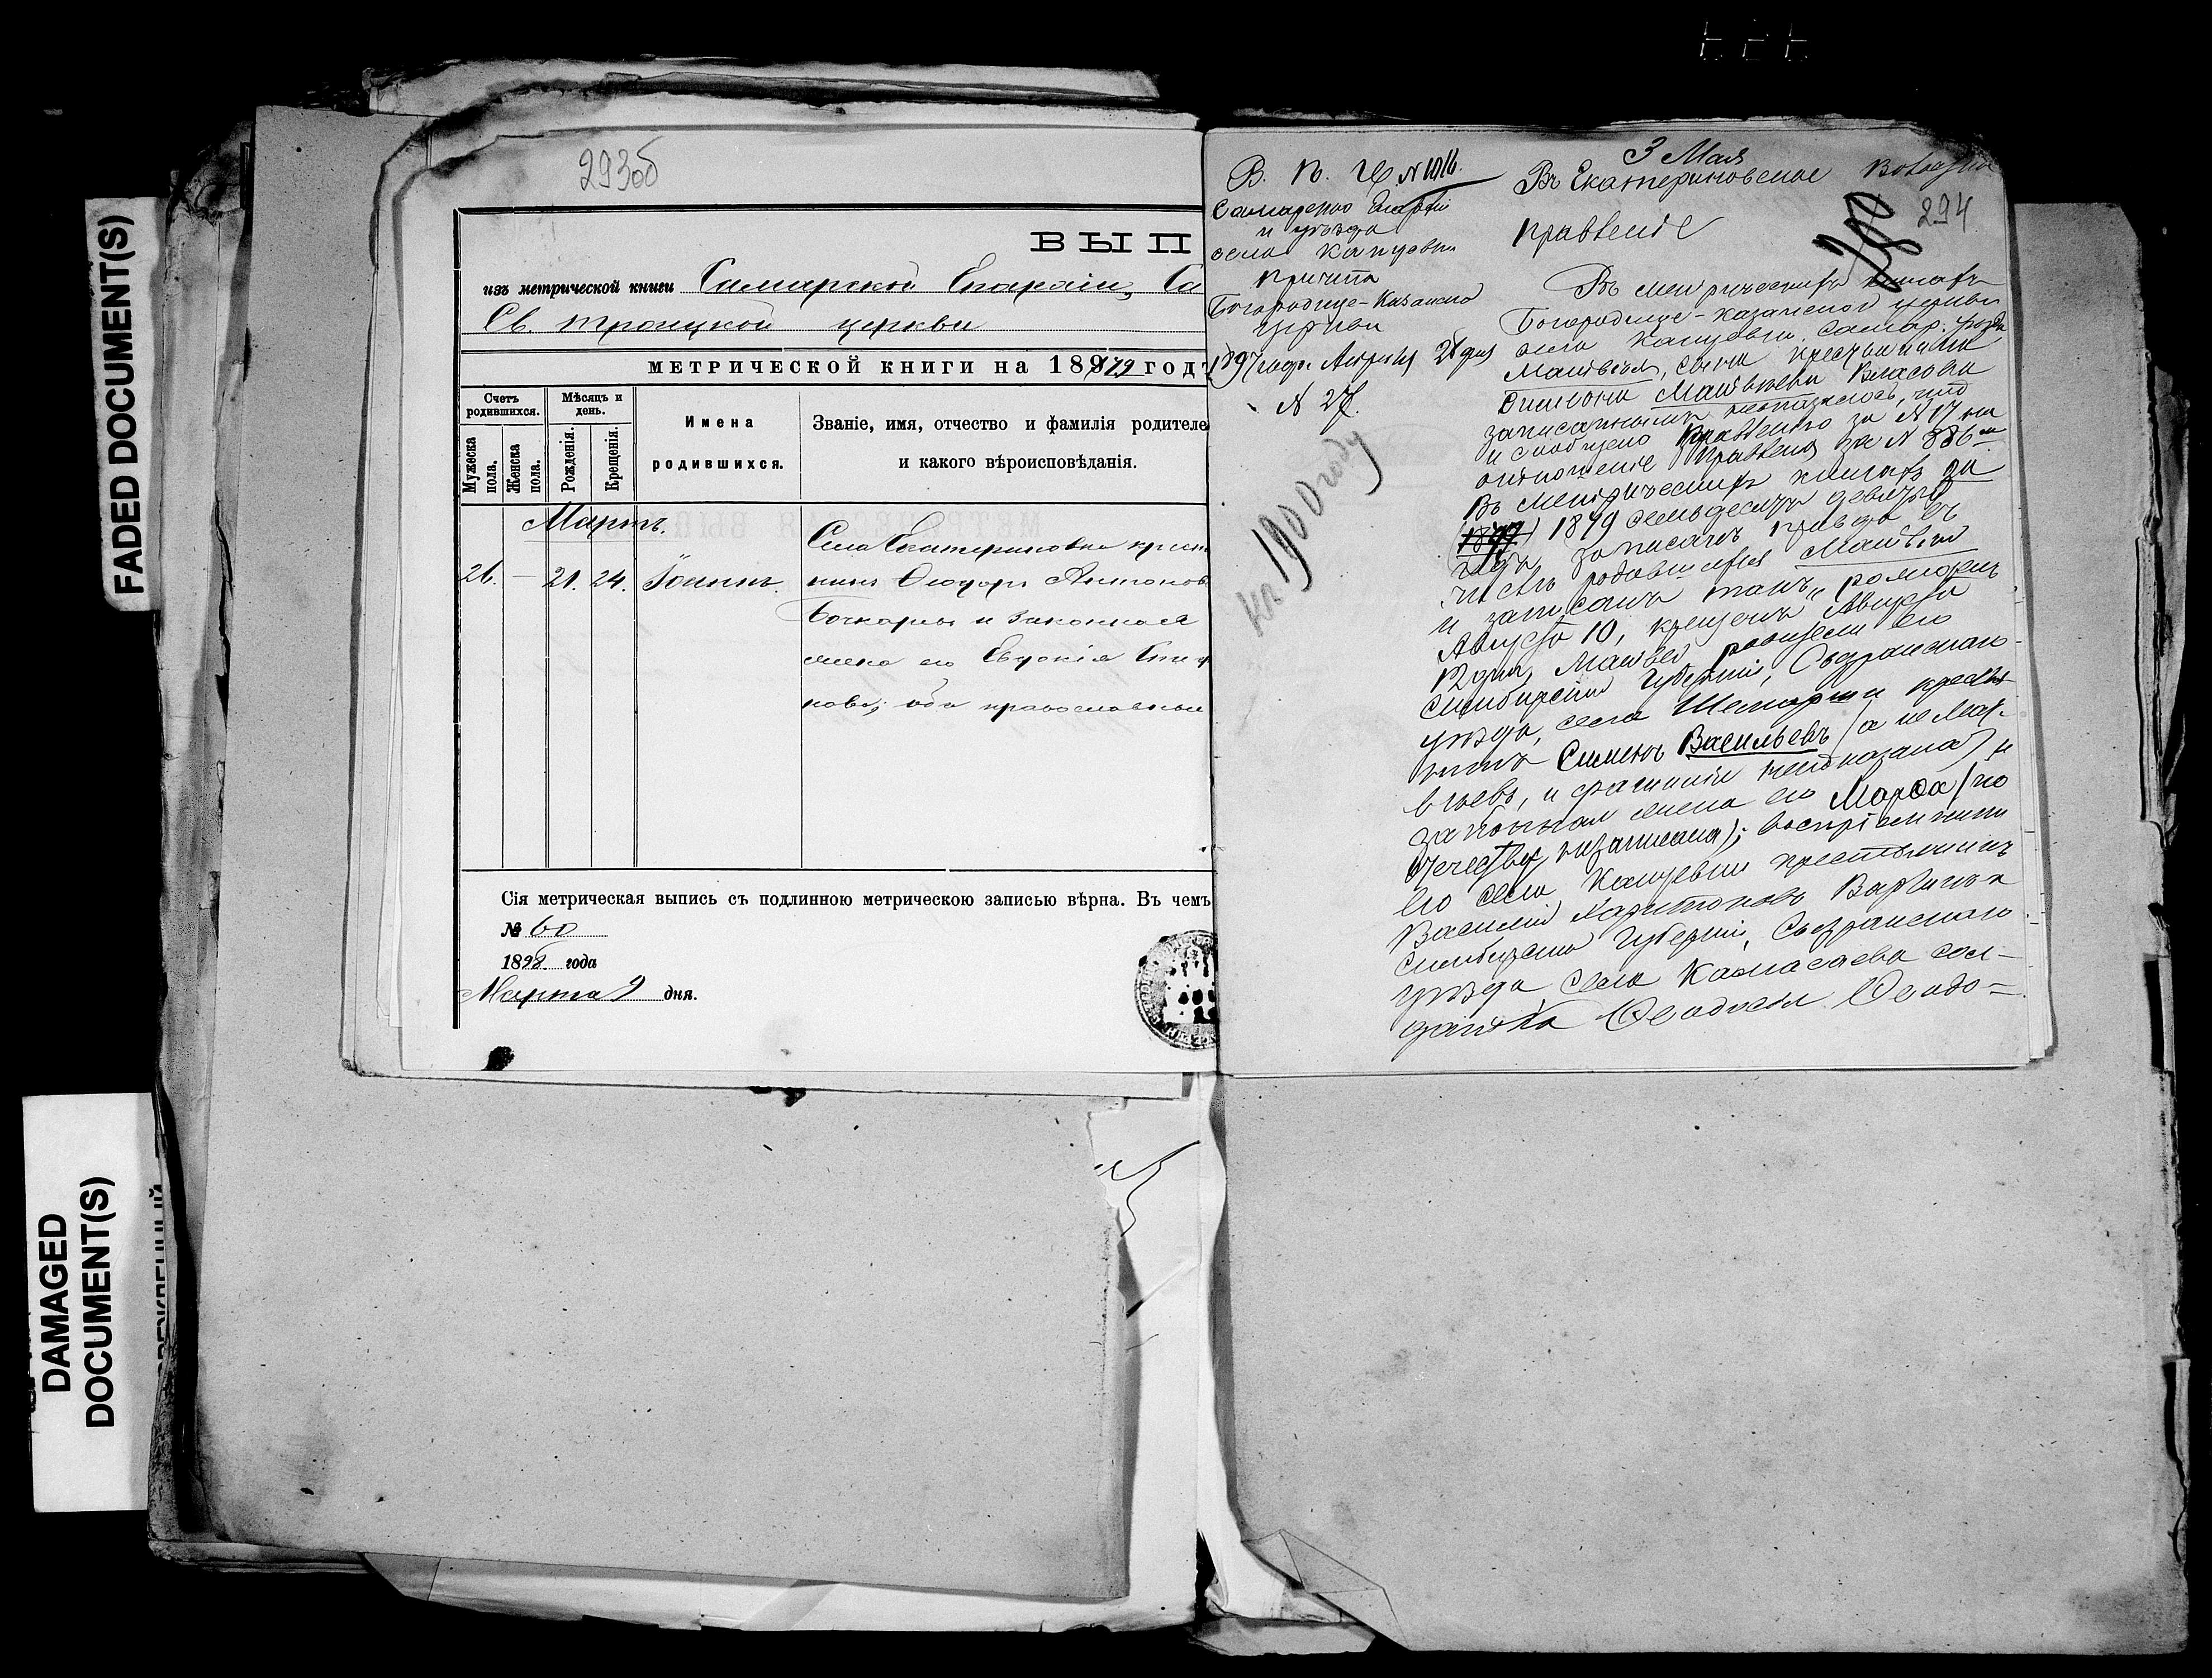 FADED DOCUMENT(S)
DAMAGED
DOCUMENT(S)
293об
ВЫП
изъ метрической книги Самарской Епархіи, Са
Св. Троицкой церкви
МЕТРИЧЕСКОЙ КНИГИ НА 1879 ГОД
Счетъ родившихся.
Мужеска пола.
Женска пола.
Мѣсяцъ и день.
Рожденія.
Крещенія.
Имена
родившихся.
Званіе, имя, отчество и фамилія родителе
и какого вѣроисповѣданія.
Мартъ.
26. — 21. 24. Іоаннъ.
Села Екатериновки крест
нинъ Ѳеодоръ Антонов
Бочкаревъ и законная
жена его Евдокія
нова; оба православные
Сія метрическая выпись съ подлинною метрическою записью вѣрна. Въ чемъ
№ 60
1898 года
Марта 9 дня.
В. П. И. N 1016.
Самарской Епархіи
и уѣзда
села Кануевки
Причта
Богородице-Казанской
церкви
1897 года Апрѣля 28 дня
N 27.
Къ 1900 году
3 Мая
Въ Екатериновское Волостное
правленіе
294
Въ метрическихъ книгахъ
Богородице-Казанской церкви
села Кануевки Самар. уѣзда
Матвѣя, сына крестьянина
Симеона Матвѣева Власова
записаннымъ не оказалось, что
и сообщено Правленію за N 17 на
отношеніе Правленія за N 886
Въ метрическихъ книгахъ за
1879 семьдесятъ девятый
годъ записанъ правда въ
числѣ родившихся Матвѣй
и записанъ такъ: рожденъ
Августа 10, крещенъ Августа
12 дня, Матвѣй родители его
Симбирской Губерніи, Сызранскаго
уѣзда, села крестья
нинъ Симеонъ Васильевъ (а не Мат-
вѣевъ, и фамилія не показана) и
законная жена его Марѳа (по
отечеству не записана); воспріемники
его села Кануевки крестьянинъ
Василій Харитоновъ и
Симбирской Губерніи, Сызранскаго
уѣзда села сол-
датка Ѳеодосія Ѳеодо=